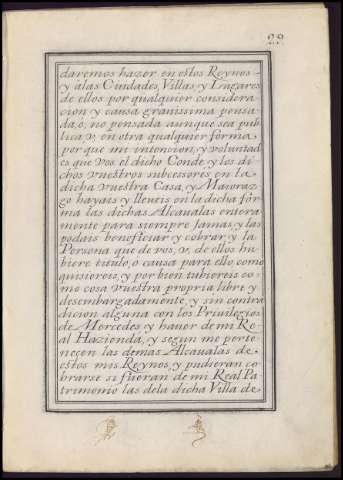 29.
daremos hazer en estos Reynos
y alas Ciudades, Villas, y Lugares
de ellos por qualquier considera
cion y causa grauissima pensa
da, ò, no pensada aunque sea pu
blica v, en otra qualquier forma
por que mi intencion, y voluntad
es que vos el dicho Conde y los di
chos vuestros subcessores en la
dicha vuestra Casa, y Maioraz
go hayais y lleueis en la dicha for
ma las dichas Alcaualas entera
mente para siempre Jamas y las
podais beneficiar y cobrar y la
Persona que de vos, v, de ellos hu
biere titulo, ò causa para ello, como
quisiereis, y por bien tubiereis co
mo cosa vuestra propria libre y
desembargadamente, y sin contra
dicion alguna con los Priuilegios
de Mercedes y hauer de mi Re
al Hazienda, y segun me perte
necen las demas Alcaualas de
estos mis Reynos, y pudieran co
brarse si fueran de mi Real Pa
trimonio las dela dicha Villa de